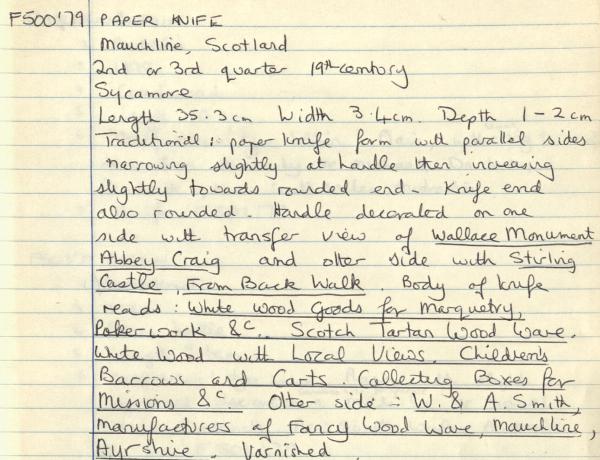 F500'79 PAPER KNIFE
Mauchline, Scotland
2nd or 3rd quarter 19th century
Sycamore
Length 35.3cm Width 3.4cm. Depth 1-2cm
Traditional: paper knife form with parallel sides
narrowing slightly at handle then increasing
slightly towards rounded end. Knife end
also rounded. Handle decorated on one
side with transfer view of Wallace Monument
Abbey Craig and other side with Stirling
Castle From Back Walk. Body of knife
reads: White Wood Goods for Marquetry,
Pokerwork &c. Scotch Tartan Wood Ware.
White Wood with Local Views. Children's
Barrows and Carts. Collecting Boxes for
Missions &c. Other side: W. & A. Smith,
manufacturers of Fancy Wood Ware, Mauchline,
Ayrshire. Varnished.